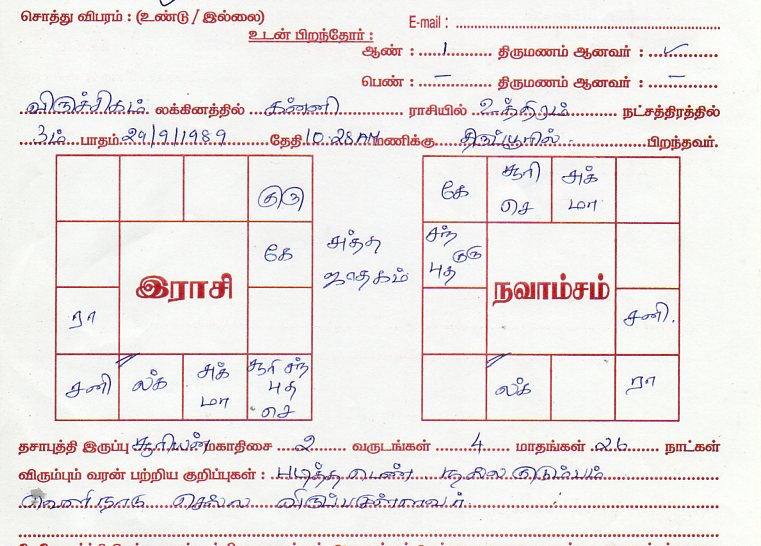 சொத்து விபரம் : (உண்டு / இல்லை)
E-mail :
உடன் பிறந்தோர் :
ஆண் : 1 திருமணம் ஆனவர் : ✓
பெண் : – திருமணம் ஆனவர் : –
விருச்சிகம் லக்கினத்தில் கன்னி ராசியில் உத்திரம் நட்சத்திரத்தில்
3ம் பாதம் 29/9/1989 தேதி 10.28 AM மணிக்கு திருப்பூரில் பிறந்தவர்.
குரு
கே
ரா
சனி
லக்
அக்
மா
சூரி சந்
புத
செ
இராசி
அத்த
ஜாதகம்
கே
சூரி
செ
அக்
மா
சந்
குரு
புத
சனி.
லக்
ரா
நவாம்சம்
தசாபுத்தி இருப்பு சூரியன் மகாதிசை 2 வருடங்கள் 4 மாதங்கள் 26 நாட்கள்
விரும்பும் வரன் பற்றிய குறிப்புகள் : படித்த பெண் நல்ல குடும்பம்
வெளிநாடு செல்ல விருப்பமுள்ளவர்